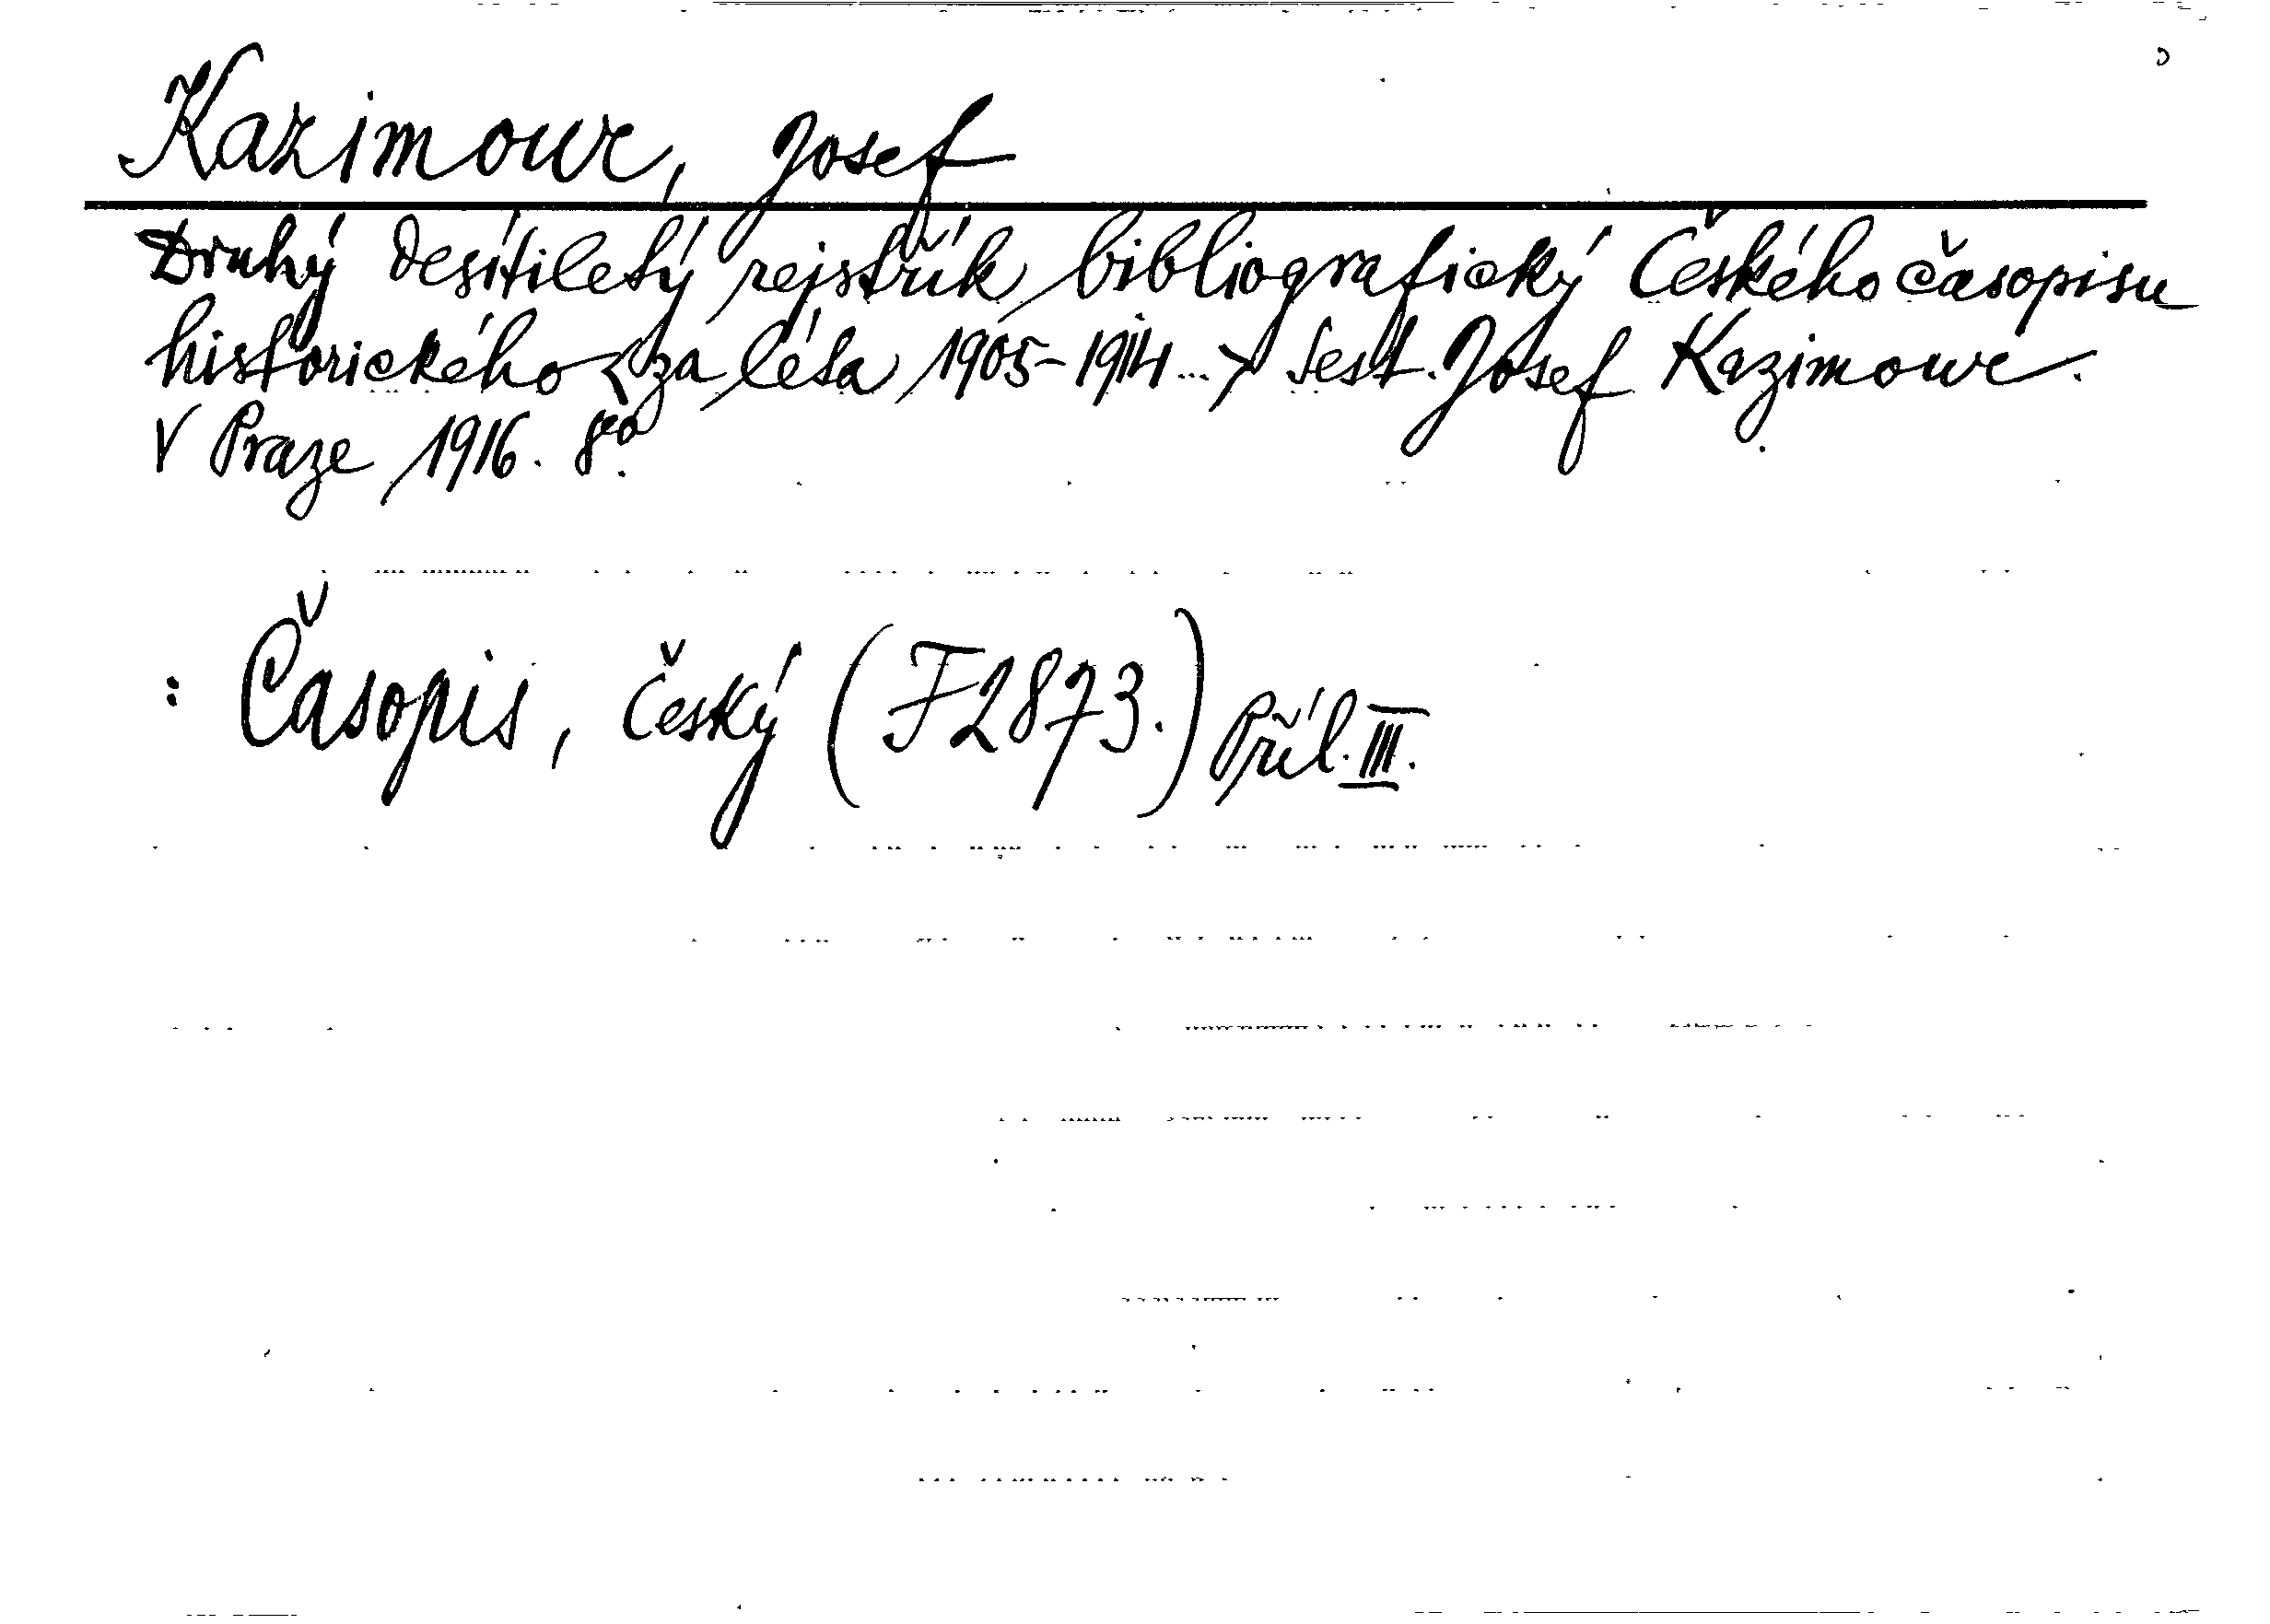 Kazimour, Josef
Druhý desítiletý rejstřík bibliografický Českého časopisu
historického <za léta 1905-1914...> Sest. Josef Kazimour.
V Praze 1916. 8vo.
: Časopis, český (F2873.) Příl. III.